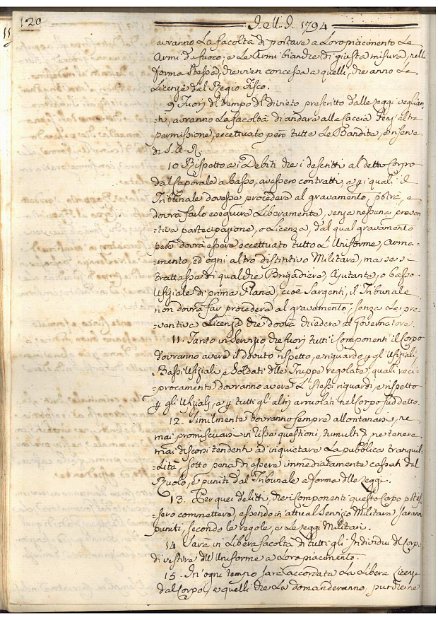 120
Dell'A. 1794
avranno La facoltà di portare a Loro piacimento Le
Armi da fuoco, e Le Armi bianche di giusta misura, nella
forma stessa, che vien concessa a quelli, che anno La
Licenza dal Regio Fisco.
9. Fuori di tempo di divieto prescritto dalle Leggi veglian-
ti, avranno La facoltà di andare alla caccia senz'altra
permissione, eccettuato però tutte Le Bandite, e riserve
di S.A.R.
10. Rispetto ai Debiti che i descritti al detto Corpo
dal Caporale a basso, avessero contratti, e ai quali il
Tribunale dovesse procedere al gravamento, potrà, e
dovrà farlo eseguire Liberamente, senza nessuna preven-
tiva partecipazione, o Licenza, dal qual gravamento
però dovrà essere eccettuato tutto L'Uniforme, Arma-
mento, ed ogni altro distintivo Militare, ma se si
trattasse di qualche Brigadiere, Ajutante, o Basso
Ufiziale di prima Plana, cioè Sargenti, il Tribunale
non dovrà far procedere al gravamento, senza La pre-
ventiva Licenza che dovrà chiedere al Governatore.
11. Tanto in servizio che fuori tutti i componenti il Corpo
dovranno avere il dovuto rispetto, e riguardo gli Ufiziali,
Bassi Ufiziali, e Soldati delle Truppe regolate, quali reci-
procamente dovranno avere Li stessi riguardi, e rispetto
per gli Ufiziali, e per tutti gli altri arruolati nel Corpo suddetto.
12. Similmente dovranno sempre allontanarsi, ne
mai promischiarsi in risse, questioni, tumulti, ne tenere
trai discorsi tendenti ad inquietare La pubblica tranquil-
Lità sotto pena di essere immediatamente cassati dal
Ruolo, e puniti dal Tribunale a forma delle Leggi.
13. Per quei delitti, che i componenti questo Corpo potes-
sero commettere, essendo in attual Servizio Militare saranno
puniti, secondo Le regole, e Le Leggi Militari.
14. Sarà in Libera facoltà di tutti gli Individui del Corpo
di vestire dell'Uniforme a Loro piacimento.
15. In ogni tempo sarà accordata La Libera Licenza
dal Corpo, a quelli che La domanderanno, purchè ne